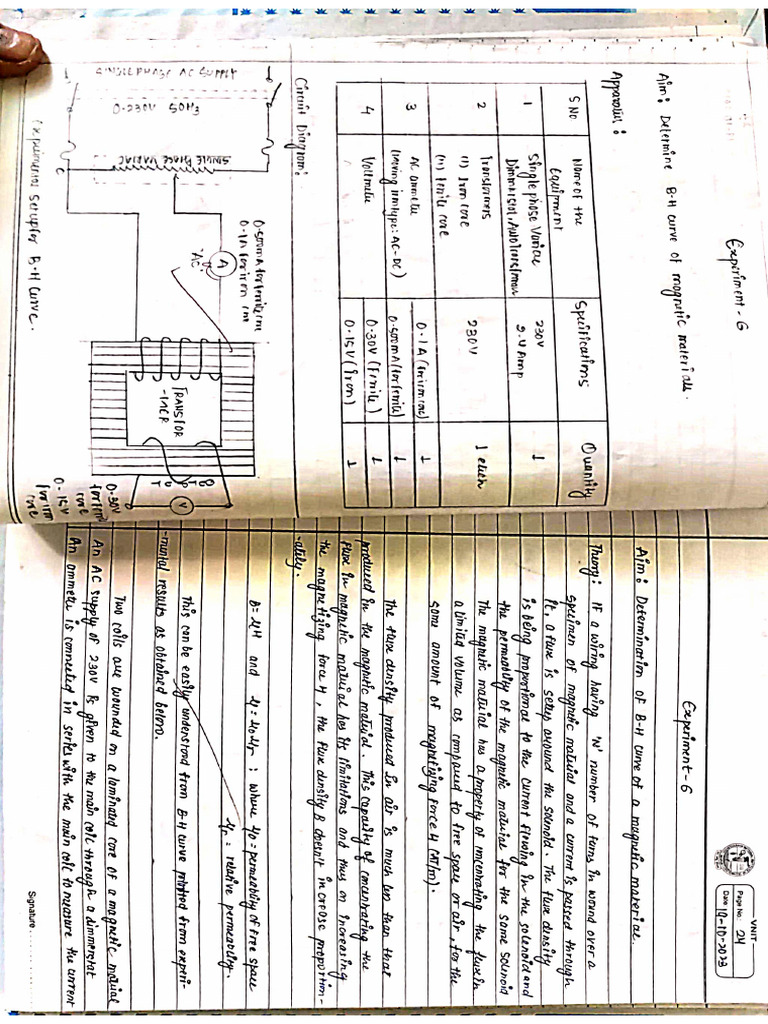 Experiment - 6
Aim: Determine B-H curve of magnetic materials.
Apparatus:
S No Name of the Equipment Specifications Quantity
1 Single phase Variac 230V 1
Dimmerstat, Autotransformer 2.4 Amp
2 Transformers 230V 1 each
(i) Iron core
(ii) Ferrite core
3 AC ammeter 0-1A (for iron core) 1
(moving iron type: AC-DC) 0-500mA (for ferrite) 1
4 Voltmeter 0-30V (Ferrite) 1
0-15V (Iron) 1
Circuit Diagram:
SINGLE PHASE AC SUPPLY
0-230V 50Hz
SINGLE PHASE VARIAC
C
A
"AC"
0-500mA for ferrite core
0-1A for iron core
TRANSFOR
-MER
V
0-30V
for ferrite
core
0-15V
for iron
core
Experimental setup for B-H Curve.
VNIT
Page No. 24
Date 19-10-2023
Experiment-6
Aim: Determination of B-H curve of a magnetic material.
Theory: If a wiring having 'N' number of turns in wound over a
specimen of magnetic material and a current is passed through
it, a flux is setup around the solenoid. The flux density
is being proportional to the current flowing in the solenoid and
the permeability of the magnetic material for the same solenoid
The magnetic material has a property of concentrating the flux in
a limited volume as compared to free space or air, for the
same amount of magnetizing force H (AT/m).
The flux density produced in air is much less than that
produced in the magnetic material. This capacity of concentrating the
flux in magnetic material has its limitations and thus on increasing
the magnetizing force H, the flux density B doesn't increase proportion-
ately.
B = μH and μ = μ0 μr ; where μ0 = permeability of free space
μr = relative permeability.
This can be easily understood from B-H curve plotted from experi-
-mental results as obtained below.
Two coils are wounded on a laminated core of a magnetic material
An AC supply of 230V is given to the main coil through a dimmerstat
An ammeter is connected in series with the main coil to measure the current
Signature